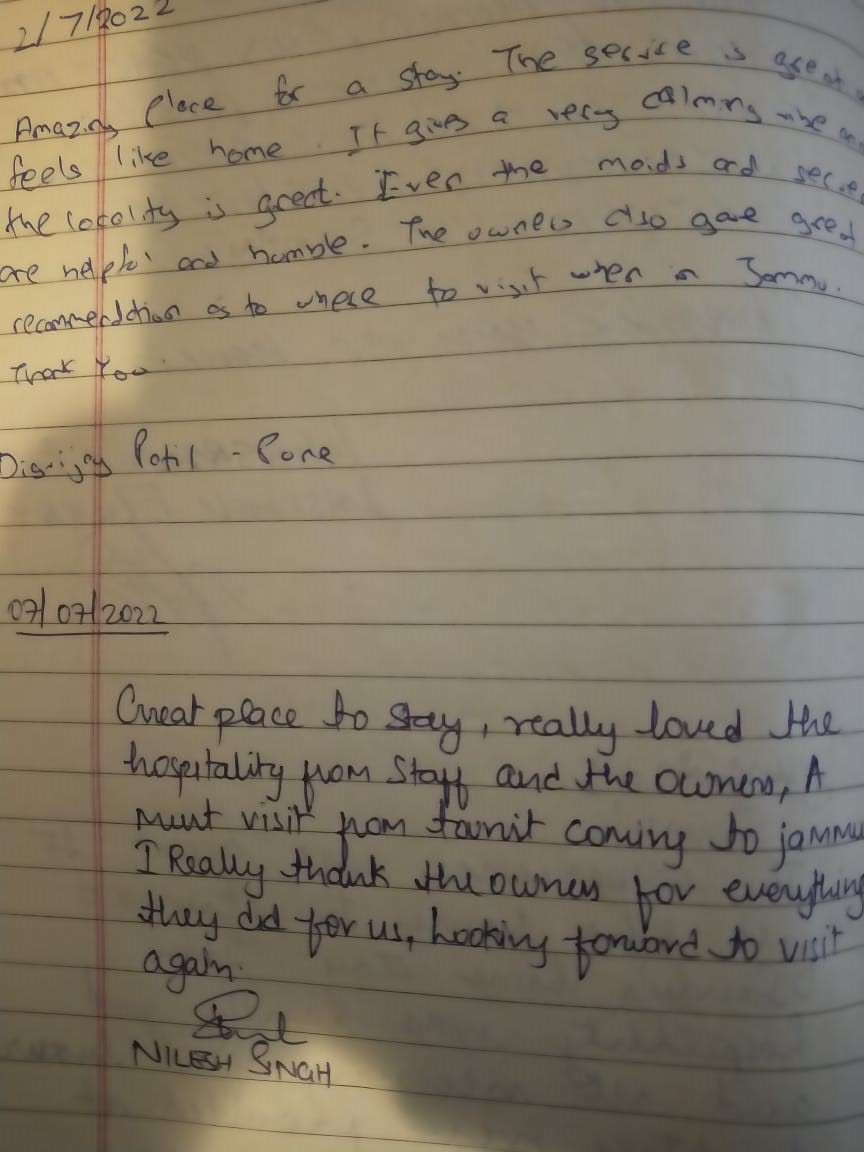 2/7/2022
Amazing Place for a stay. The service is great
feels like home. It gives a very calming vibe
the locality is great. Even the maids and
are helpful and humble. The owners also gave great
recommendation as to where to visit when in Jammu.
Thank You
Digvijay Patil - Pune
07/07/2022
Great place to stay, really loved the
hospitality from Staff and the owners, A
must visit from tourist coming to jammu
I Really thank the owners for everything
they did for us, Looking forward to visit
again.
NILESH SINGH